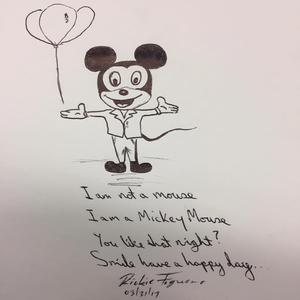 I am not a mouse
I am a Mickey Mouse
You like that right?
Smile have a happy day...
Rickie Figueroa
03/21/17